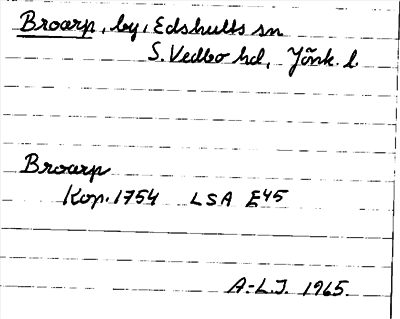 Broarp, by, Edshults sn
S. Vedbo hd, Jönk. l.
Broarp
Kop. 1754 LSA E45
A.-L.J. 1965.